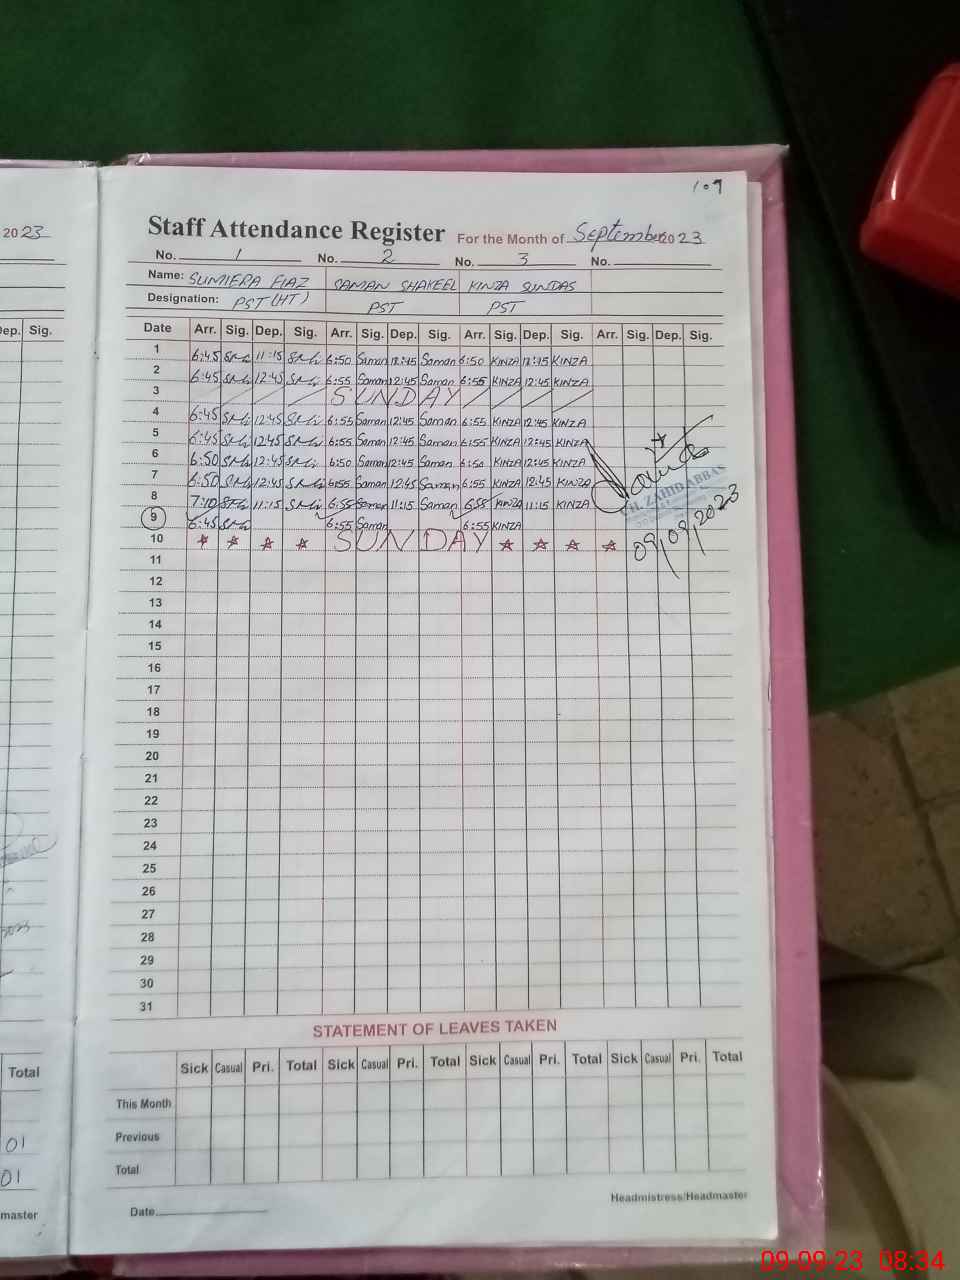 109
2023
Staff Attendance Register For the Month of September 2023
No. 1 No. 2 No. 3 No.
Name: SUMIERA FIAZ SAMAN SHAKEEL KINZA SUNDAS
Designation: PST (HT) PST PST
ep. Sig.
Date Arr. Sig. Dep. Sig. Arr. Sig. Dep. Sig. Arr. Sig. Dep. Sig. Arr. Sig. Dep. Sig.
1 6:45 11:15 6:50 Saman 12:45 Saman 6:50 KINZA 12:45 KINZA
2 6:45 12:45 6:55 Saman 12:45 Saman 6:55 KINZA 12:45 KINZA
3 SUNDAY
4 6:45 12:45 6:55 Saman 12:45 Saman 6:55 KINZA 12:45 KINZA
5 6:45 12:45 6:55 Saman 12:45 Saman 6:55 KINZA 12:45 KINZA
6 6:50 12:45 6:50 Saman 12:45 Saman 6:50 KINZA 12:45 KINZA
7 6:50 12:45 6:55 Saman 12:45 Saman 6:55 KINZA 12:45 KINZA
8 7:10 11:15 6:55 Saman 11:15 Saman 6:55 KINZA 11:15 KINZA
9 6:45 6:55 Saman 6:55 KINZA
H. ZAHID ABBAS
09/09/2023
10 SUNDAY
11
12
13
14
15
16
17
18
19
20
21
22
23
24
25
26
27
28
29
30
31
STATEMENT OF LEAVES TAKEN
Total
Sick Casual Pri. Total Sick Casual Pri. Total Sick Casual Pri. Total Sick Casual Pri. Total
This Month
Previous
01
Total
01
master
Headmistress/Headmaster
Date
09-09-23 08:34